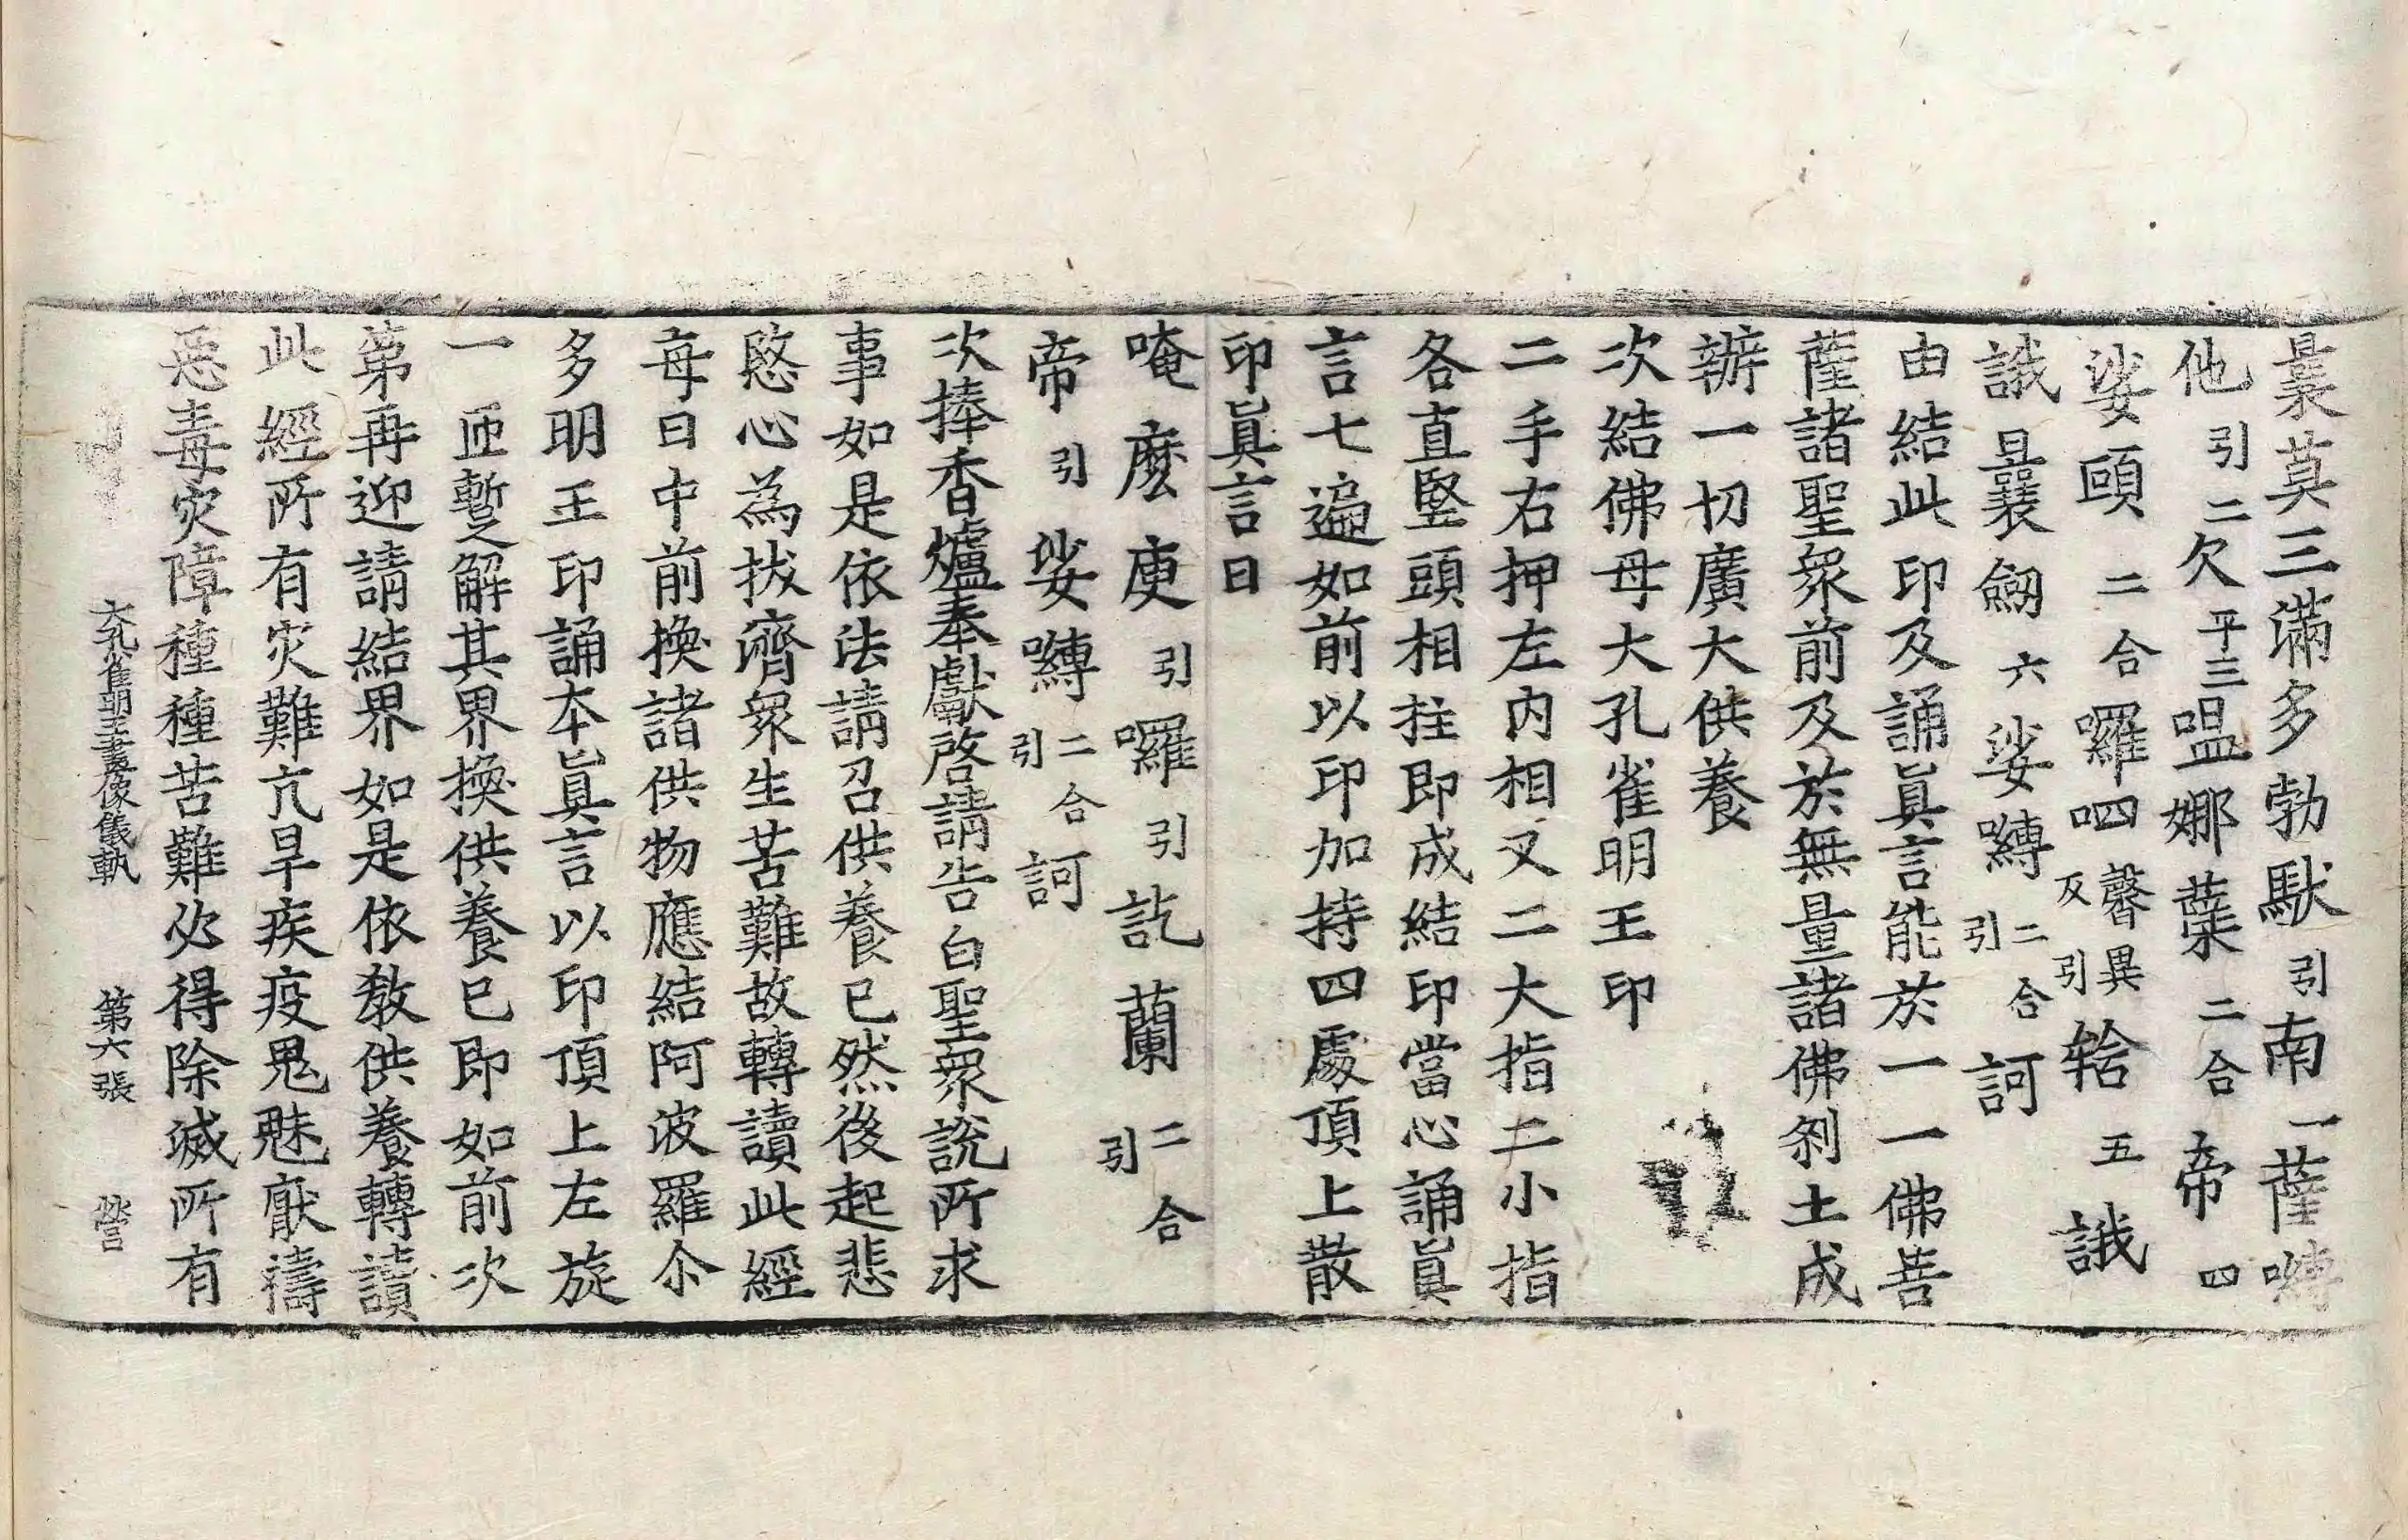 曩莫三滿多勃馱引南一薩嚩
他引二欠平三嗢娜蘖二合帝四
娑頗二合囉呬馨異反引𨋢五誐
誐曩劒六娑嚩二合引訶
由結此印及誦眞言能於一一佛菩
薩諸聖衆前及於無量諸佛刹土成
辦一切廣大供養
次結佛母大孔雀明王印
二手右押左內相叉二大指二小指
各直竪頭相拄即成結印當心誦眞
言七遍如前以印加持四處頂上散
印眞言曰
唵麼庾引囉引訖蘭二合引
帝引娑嚩二合引訶
次捧香爐奉獻啓請告白聖衆說所求
事如是依法請召供養已然後起悲
愍心為拔濟衆生苦難故轉讀此經
每日中前換諸供物應結阿波羅尒
多明王印誦本眞言以印頂上左旋
一匝暫解其界換供養已即如前次
第再迎請結界如是依教供養轉讀
此經所有灾難亢旱疾疫鬼魅厭禱
惡毒灾障種種苦難必得除滅所有
大孔雀明王畫像儀軌 第六張 營